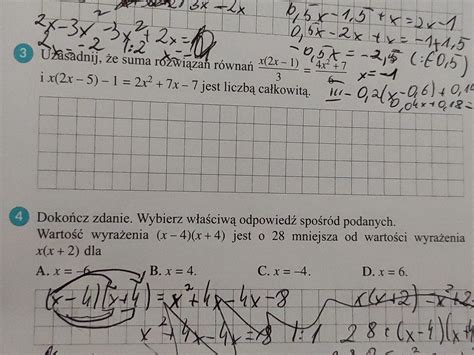 2x-3x²-3x²+2x=
2x=-2 1:2
0,5x-1,5+x=2x-1
0,5x-2x+x=-1+1,5
-0,5x=-2,5 (:(-0,5)
x=-1
III -0,2(x-0,6)+0,1
0,04x+0,18=
3 Uzasadnij, że suma rozwiązań równań x(2x-1)/3 = 4x²+7/6
i x(2x-5)-1=2x²+7x-7 jest liczbą całkowitą.
4 Dokończ zdanie. Wybierz właściwą odpowiedź spośród podanych.
Wartość wyrażenia (x-4)(x+4) jest o 28 mniejsza od wartości wyrażenia
x(x+2) dla
A. x=-6. B. x=4. C. x=-4. D. x=6.
(x-4)(x+4)=x²+4x-4x-8 x(x+2)-x²+2
x²+4x-4x=8 1:1 28+(x-4)(x+